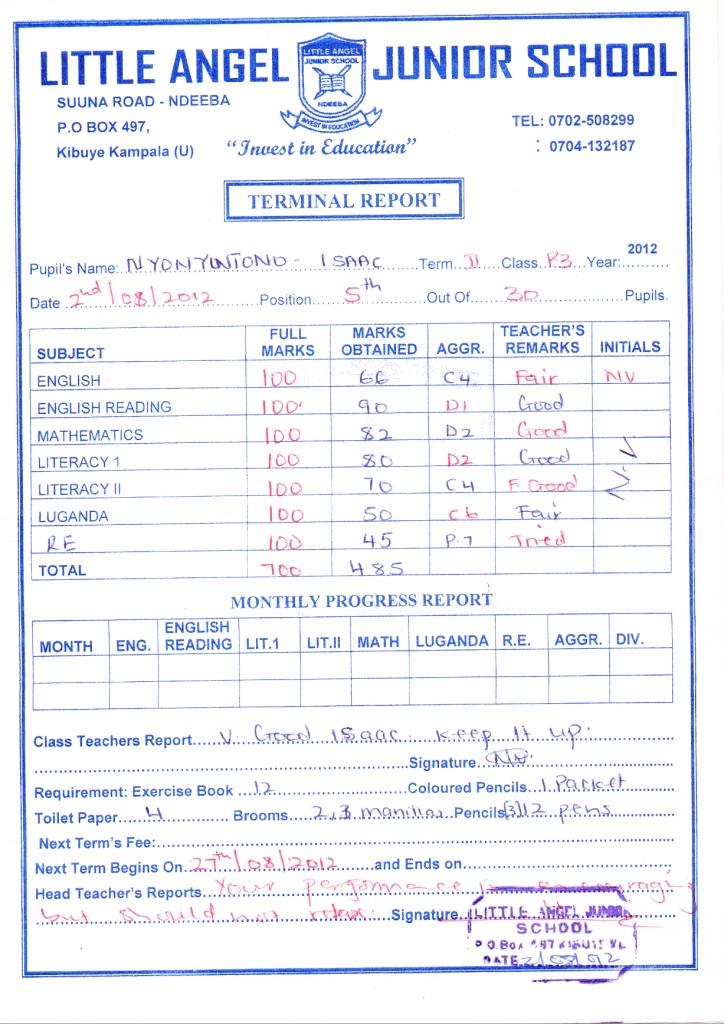 LITTLE ANGEL JUNIOR SCHOOL
LITTLE ANGEL
JUNIOR SCHOOL
NDEEBA
INVEST IN EDUCATION
SUUNA ROAD - NDEEBA
P.O BOX 497,
Kibuye Kampala (U)
"Invest in Education"
TEL: 0702-508299
: 0704-132187
TERMINAL REPORT
Pupil's Name: NYONYINTONO - ISAAC Term II Class P3 Year: 2012
Date 2nd/08/2012 Position 5th Out Of 30 Pupils.
SUBJECT FULL MARKS MARKS OBTAINED AGGR. TEACHER'S REMARKS INITIALS
ENGLISH 100 66 C4 Fair NV
ENGLISH READING 100 90 D1 Good
MATHEMATICS 100 82 D2 Good
LITERACY 1 100 80 D2 Good
LITERACY II 100 70 C4 F. Good
LUGANDA 100 50 C6 Fair
RE 100 45 P.7 Tried
TOTAL 700 485
MONTHLY PROGRESS REPORT
MONTH ENG. ENGLISH READING LIT.1 LIT.II MATH LUGANDA R.E. AGGR. DIV.
Class Teachers Report V. Good Isaac. Keep it up.
Signature
Requirement: Exercise Book 12 Coloured Pencils 1 Packet
Toilet Paper 4 Brooms 2, 3 manillas Pencils [3] 12 pens
Next Term's Fee:
Next Term Begins On 27th/08/2012 and Ends on
Head Teacher's Reports Your performance is encouraging
but should not relax. Signature
LITTLE ANGEL JUNIOR
SCHOOL
P.O.Box 497 KIBUYE
DATE